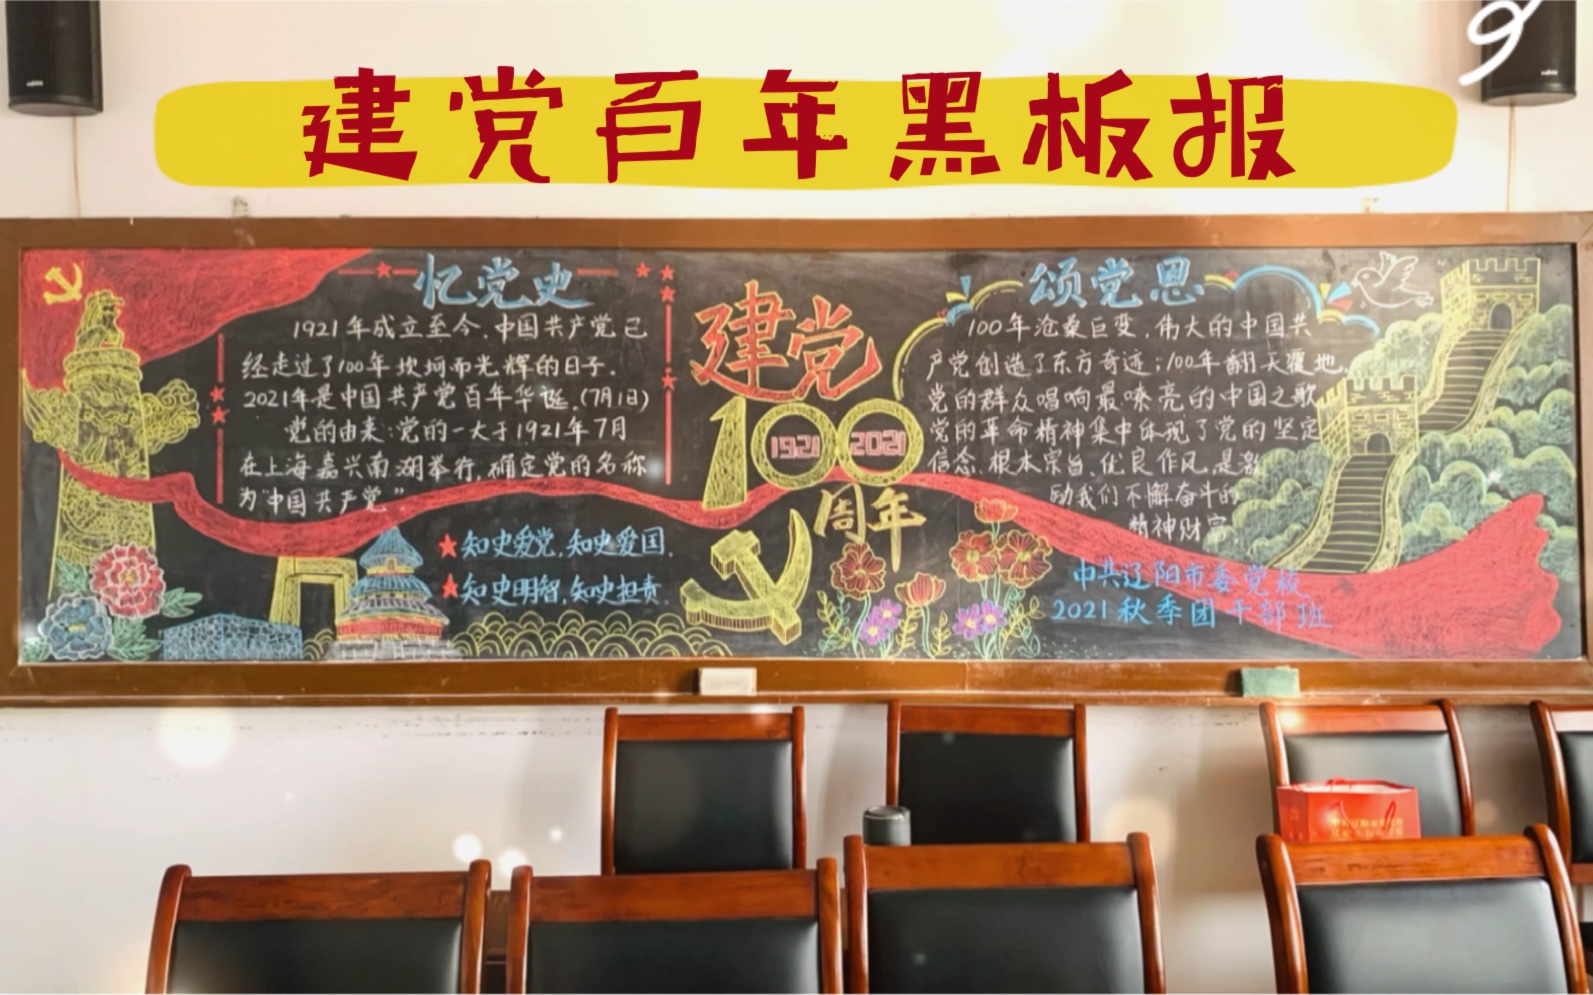 建党百年黑板报
忆党史
1921年成立至今,中国共产党已
经走过了100年坎坷而光辉的日子.
2021年是中国共产党百年华诞.(7月1日)
党的由来:党的一大于1921年7月
在上海嘉兴南湖举行,确定党的名称
为"中国共产党"
★知史爱党,知史爱国.
★知史明智,知史担责.
建党
100
1921 2021
周年
颂党恩
100年沧桑巨变,伟大的中国共
产党创造了东方奇迹;100年翻天覆地,
党的群众唱响最嘹亮的中国之歌
党的革命精神集中体现了党的坚定
信念,根本宗旨,优良作风,是激
励我们不懈奋斗的
精神财富.
中共辽阳市委党校
2021秋季团干部班